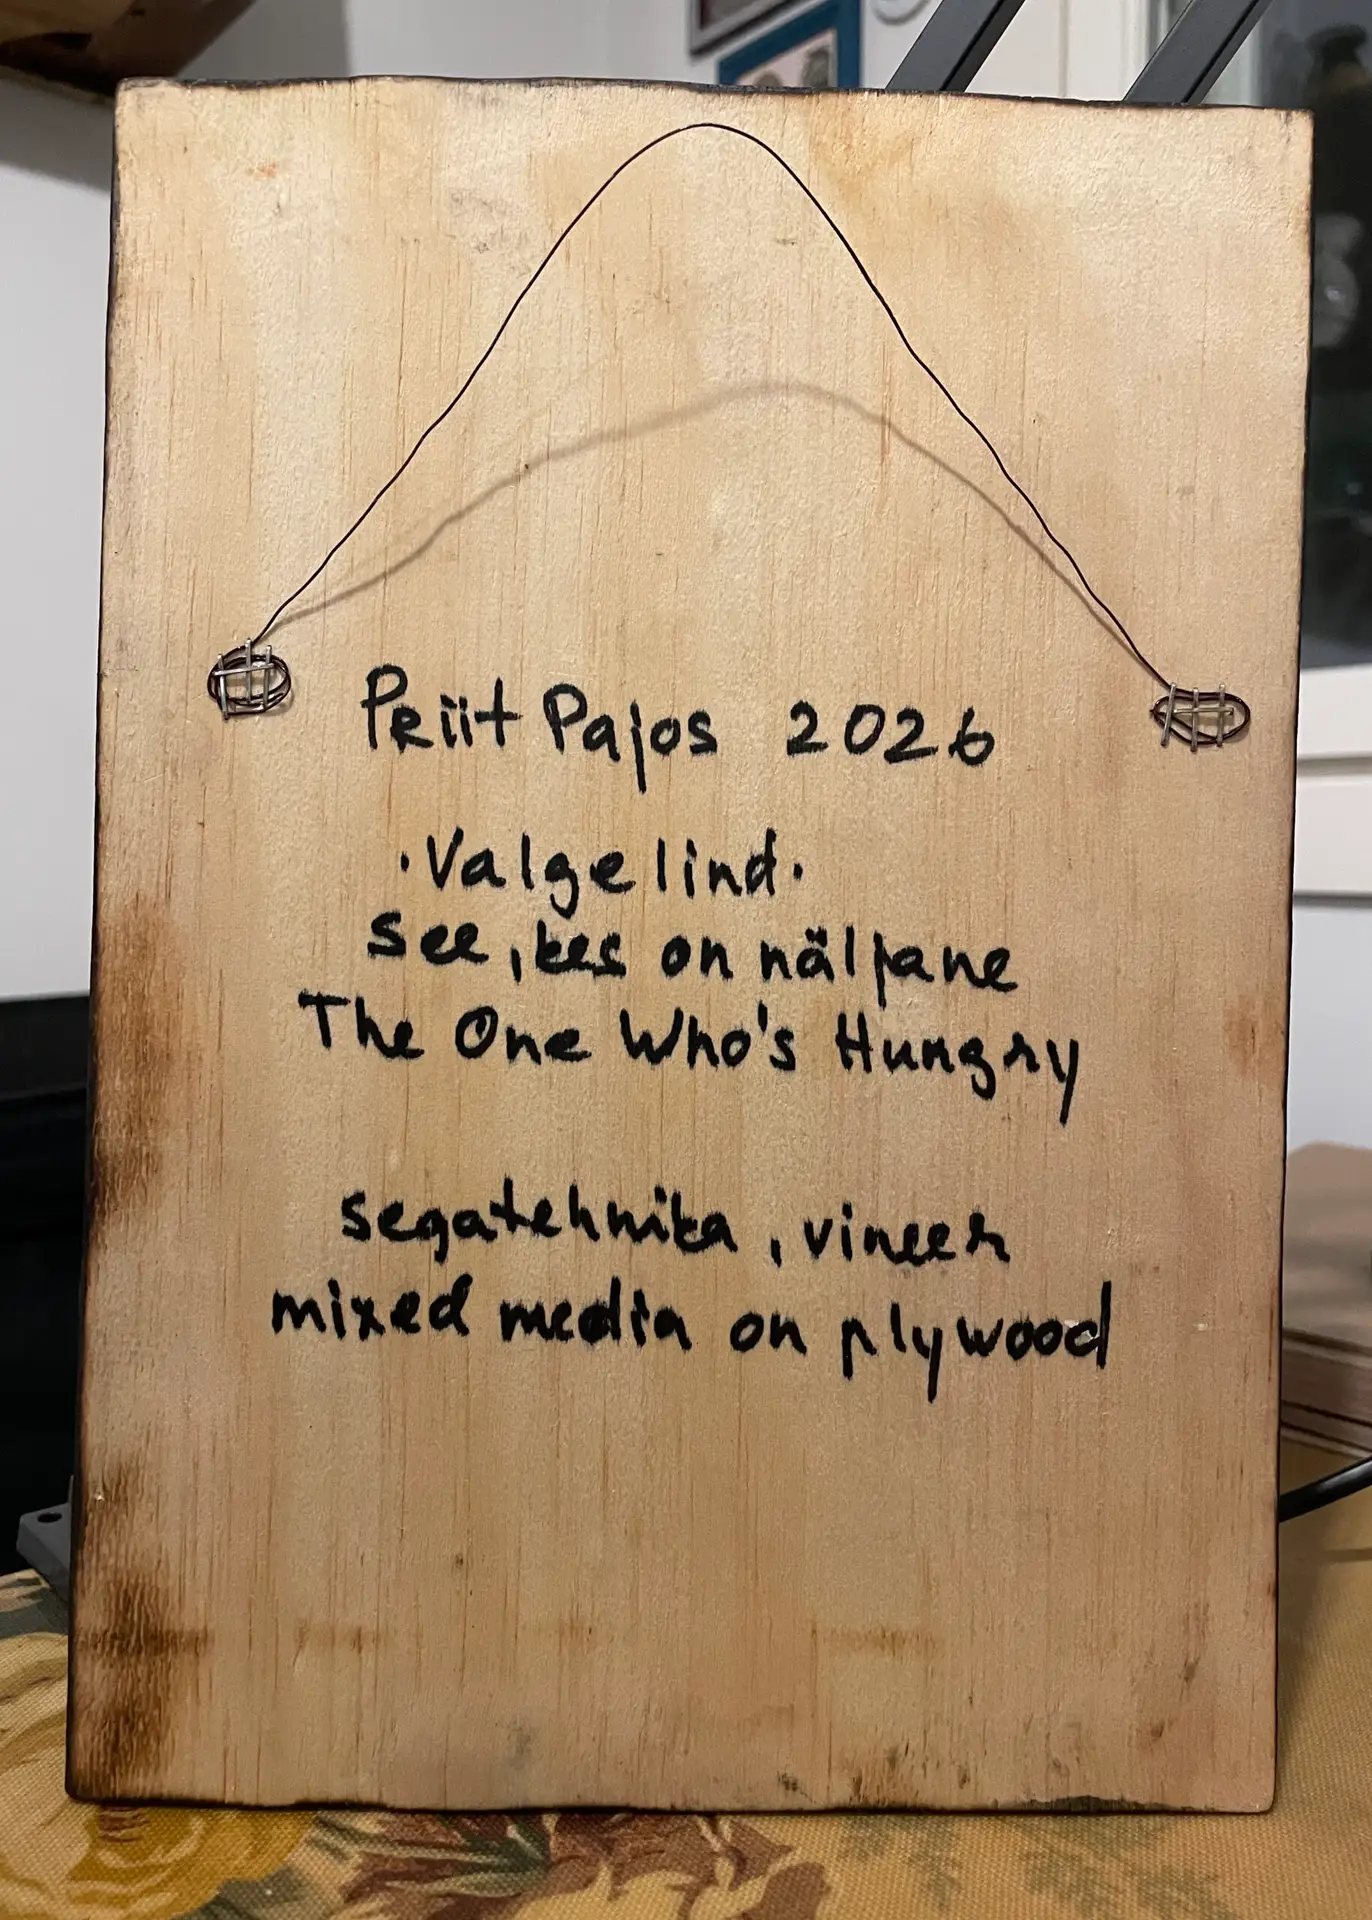 Priit Pajos 2026
·Valgelind·
see, kes on näljane
The One Who's Hungry
segatehnika, vineer
mixed media on plywood